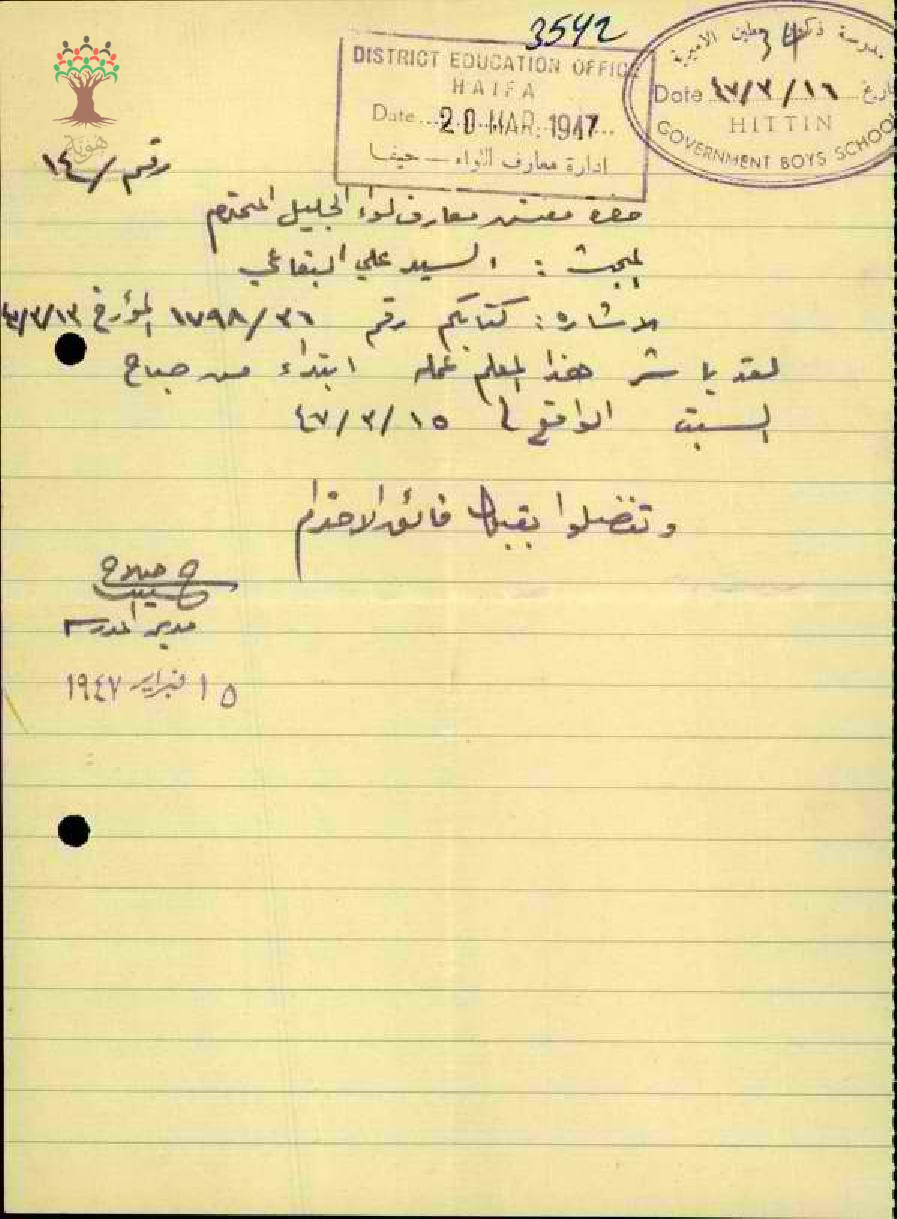 3542
DISTRICT EDUCATION OFFICE
HAIFA
Date 20 MAR. 1947
ادارة معارف اللواء — حيفا
مدرسة ذكور حطين الاميرية
34
Date ٤٧/٣/١٦ تاريخ
HITTIN
GOVERNMENT BOYS SCHOOL
هوية
رقم /١٤
حضرة مفتش معارف لواء الجليل المحترم
المبحث : السيد علي البقاعي
الاشارة : كتابكم رقم ١٧٩٨/٣٦ المؤرخ ٤٧/٣/١٣
لقد باشر هذا المعلم عمله ابتداء من صباح
السبت الواقع في ٤٧/٣/١٥
وتفضلوا بقبول فائق الاحترام
مدير المدرسة
١٥ فبراير ١٩٤٧